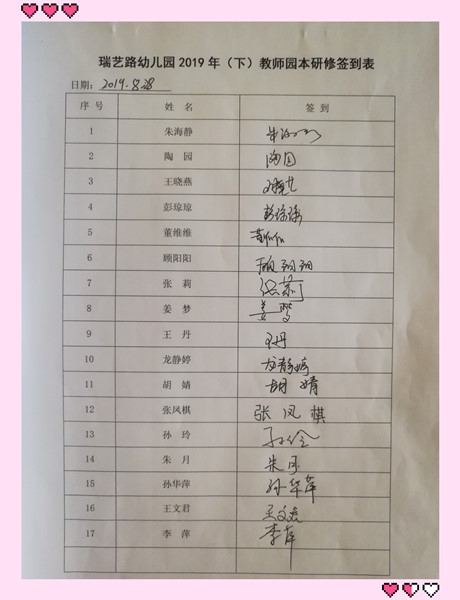 瑞艺路幼儿园2019年（下）教师园本研修签到表
日期：2019.8.28
序 号 姓 名 签 到
1 朱海静 朱海静
2 陶 园 陶园
3 王晓燕
4 彭琼琼 彭琼琼
5 董维维 董维维
6 顾阳阳 顾阳阳
7 张 莉 张莉
8 姜 梦 姜梦
9 王 丹 王丹
10 龙静婷 龙静婷
11 胡 婧 胡婧
12 张凤棋 张凤棋
13 孙 玲 孙玲
14 朱 月 朱月
15 孙华萍 孙华萍
16 王文君 王文君
17 李 萍 李萍